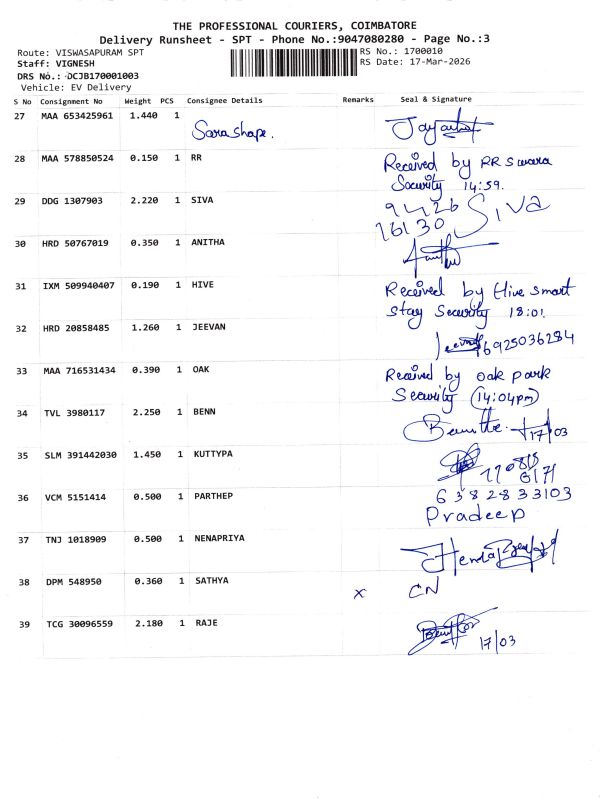 THE PROFESSIONAL COURIERS, COIMBATORE
Delivery Runsheet - SPT - Phone No.:9047080280 - Page No.:3
Route: VISWASAPURAM SPT
Staff: VIGNESH
DRS No.: DCJB170001003
Vehicle: EV Delivery
RS No.: 1700010
RS Date: 17-Mar-2026
S No Consignment No Weight PCS Consignee Details Remarks Seal & Signature
27 MAA 653425961 1.440 1 Sarashape.
28 MAA 578850524 0.150 1 RR Received by RR Swara
Security 14:59.
29 DDG 1307903 2.220 1 SIVA 9426 SIVA
76130
30 HRD 50767019 0.350 1 ANITHA
31 IXM 509940407 0.190 1 HIVE Received by Hive Smart
Stay Security 18:01.
32 HRD 20858485 1.260 1 JEEVAN 6925036284
33 MAA 716531434 0.390 1 OAK Received by oak park
Security (14:04pm)
34 TVL 3980117 2.250 1 BENN 17/03
35 SLM 391442030 1.450 1 KUTTYPA
36 VCM 5151414 0.500 1 PARTHEP 6382833103
Pradeep
37 TNJ 1018909 0.500 1 NENAPRIYA
38 DPM 548950 0.360 1 SATHYA x CN
39 TCG 30096559 2.180 1 RAJE 17/03